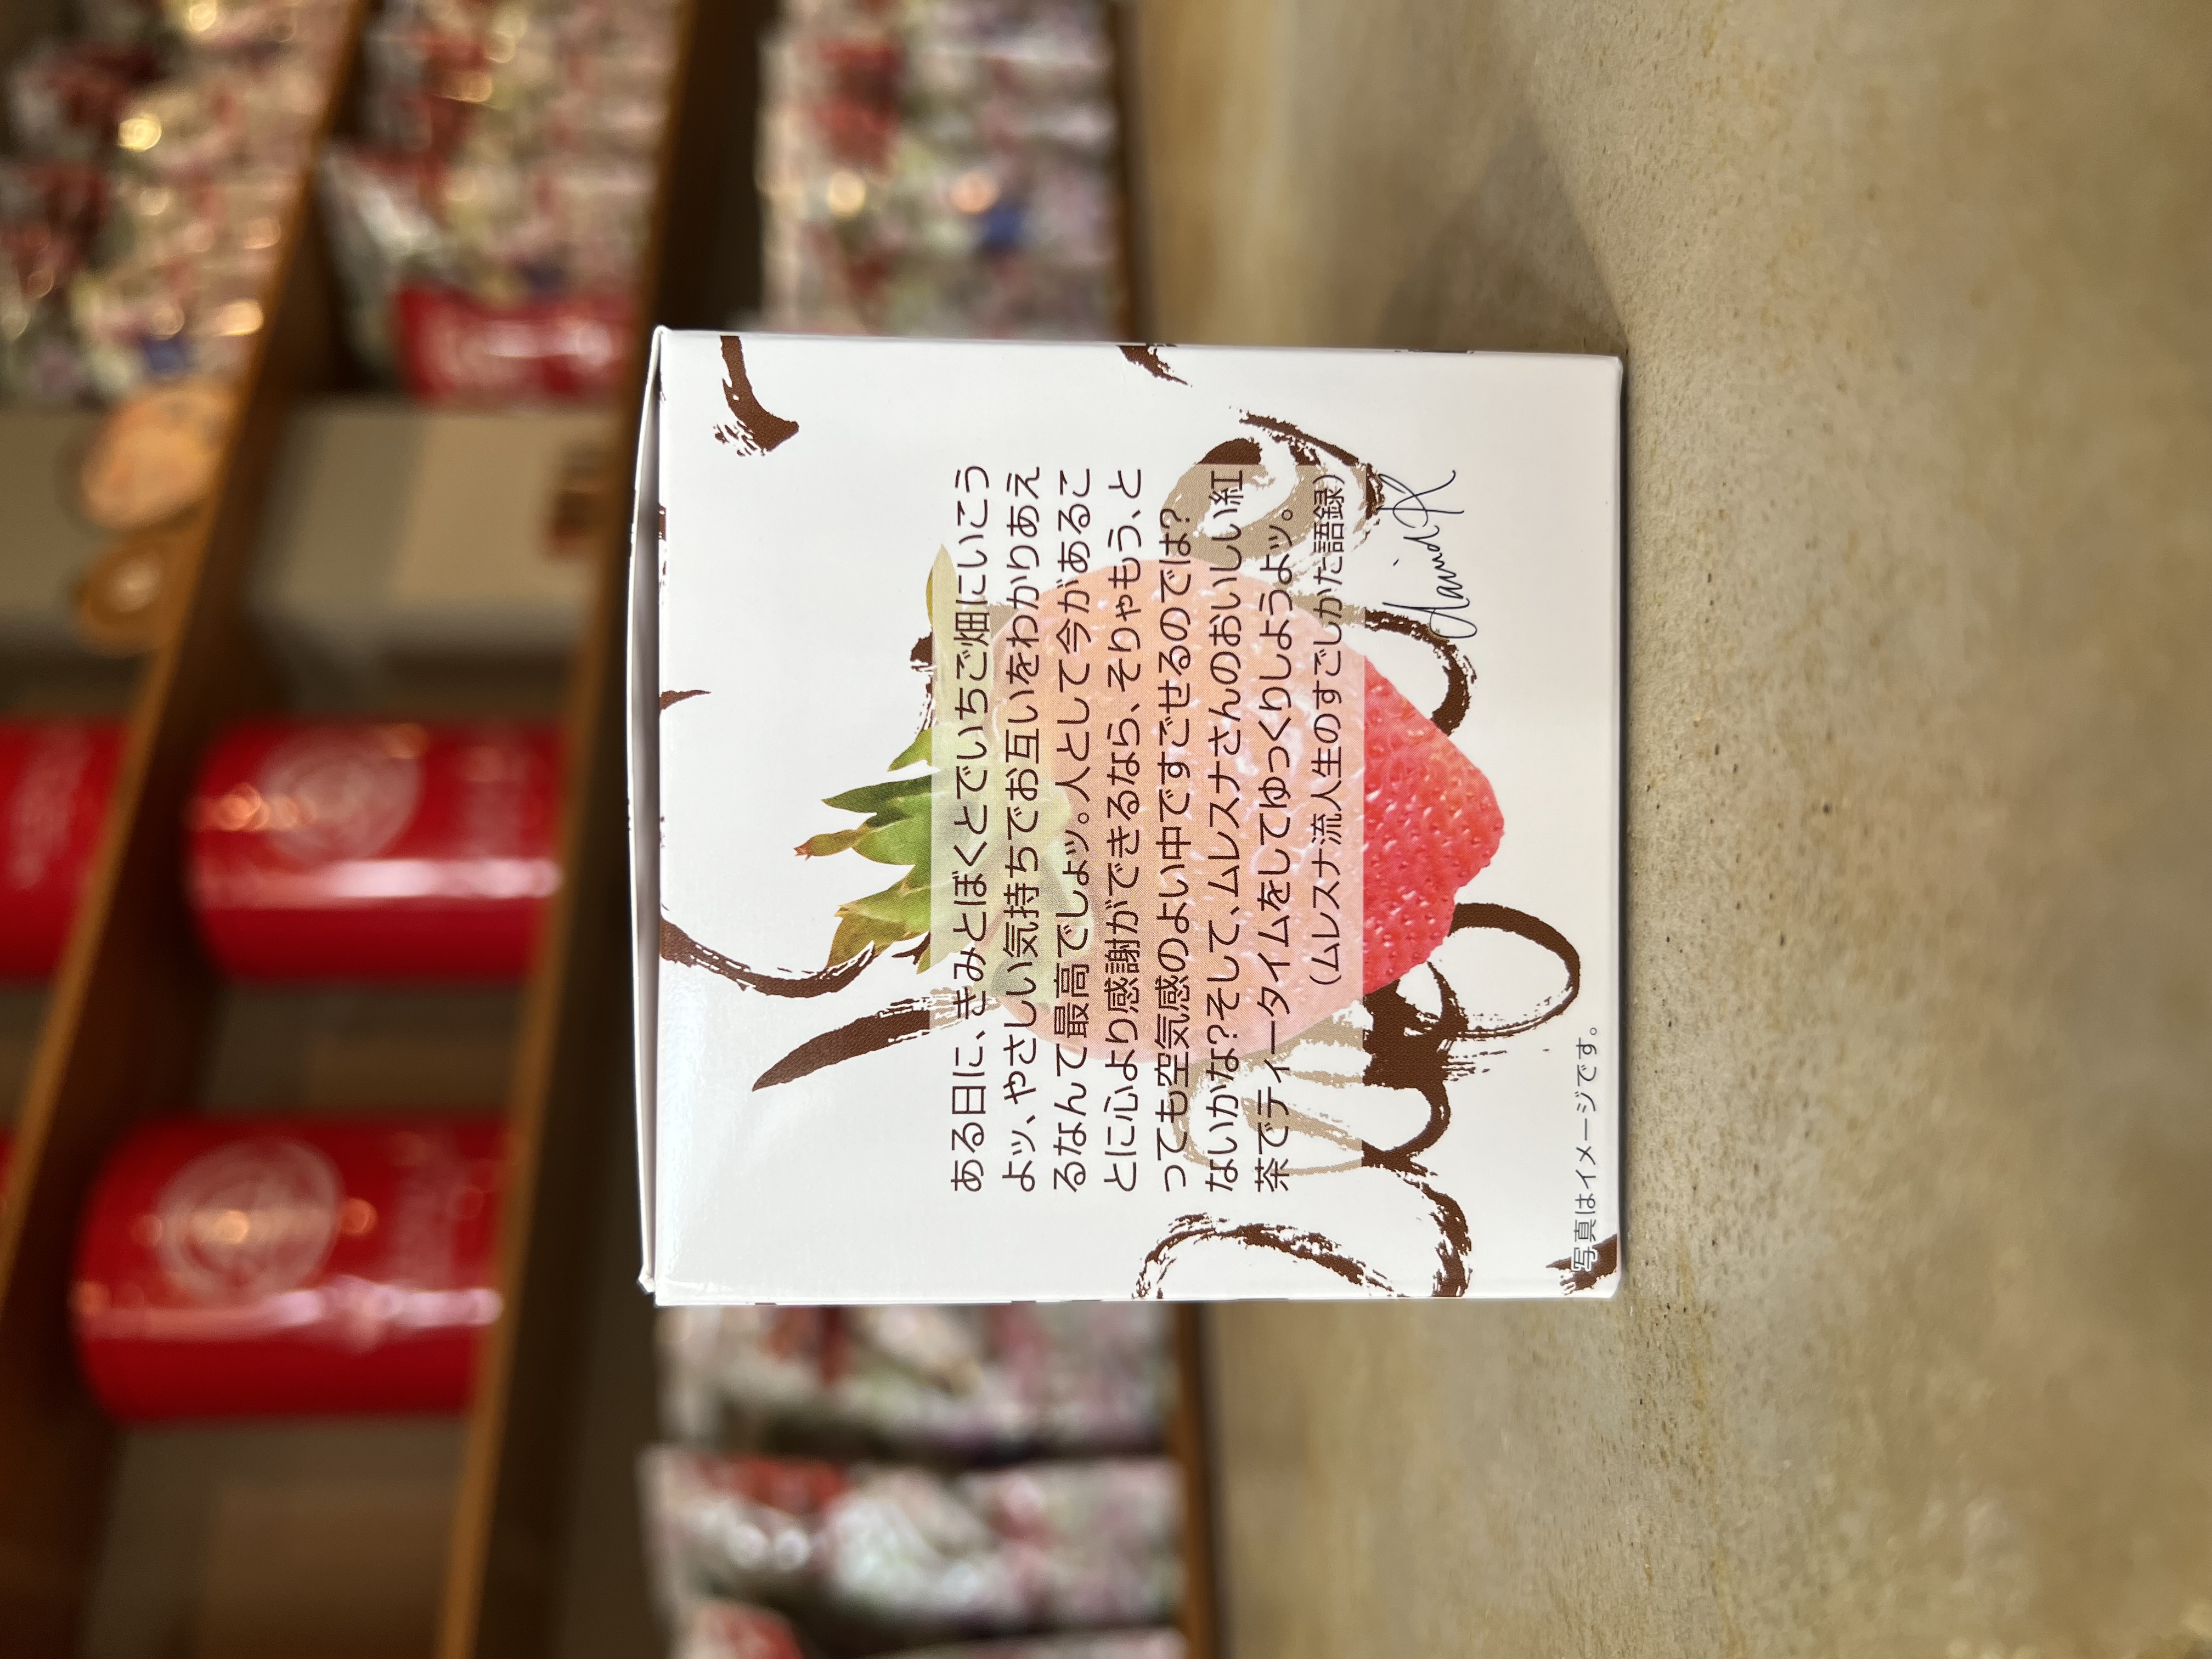 ある日に、きみとぼくとでいちご畑にいこう
よッ、やさしい気持ちでお互いをわかりあえ
るなんて最高でしょッ。人として今があるこ
とに心より感謝ができるなら、そりゃもう、と
っても空気感のよい中ですごせるのでは?
ないかな?そして、ムレスナさんのおいしい紅
茶でティータイムをしてゆっくりしようよッ。
(ムレスナ流人生のすごしかた語録)
写真はイメージです。